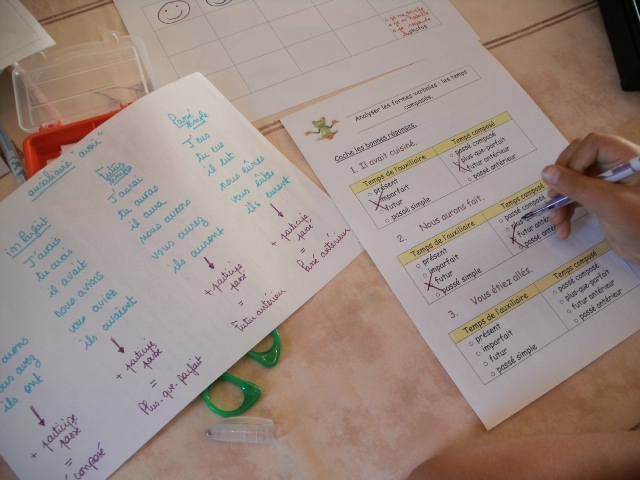 auxiliaire "avoir"
imparfait
J'avais
tu avais
il avait
nous avions
vous aviez
ils avaient
+ participe
passé
=
Plus-que-parfait
futur
simple
J'aurai
tu auras
il aura
nous aurons
vous aurez
ils auront
+ participe
passé
=
Futur antérieur
Passé
simple
J'eus
tu eus
il eut
nous eûmes
vous eûtes
ils eurent
+ participe
passé
=
Passé antérieur
avons
avez
ils ont
+ participe
passé
=
composé
Analyser les formes verbales : les temps
composés.
Coche les bonnes réponses.
1. Il avait cuisiné.
Temps de l'auxiliaire
Temps composé
présent
imparfait
futur
passé simple
passé composé
plus-que-parfait
futur antérieur
passé antérieur
2. Nous aurons fait.
Temps de l'auxiliaire
Temps composé
présent
imparfait
futur
passé simple
passé
futur
passé antérieur
3. Vous étiez allés.
Temps de l'auxiliaire
Temps composé
présent
imparfait
futur
passé simple
passé composé
plus-que-parfait
futur antérieur
passé antérieur